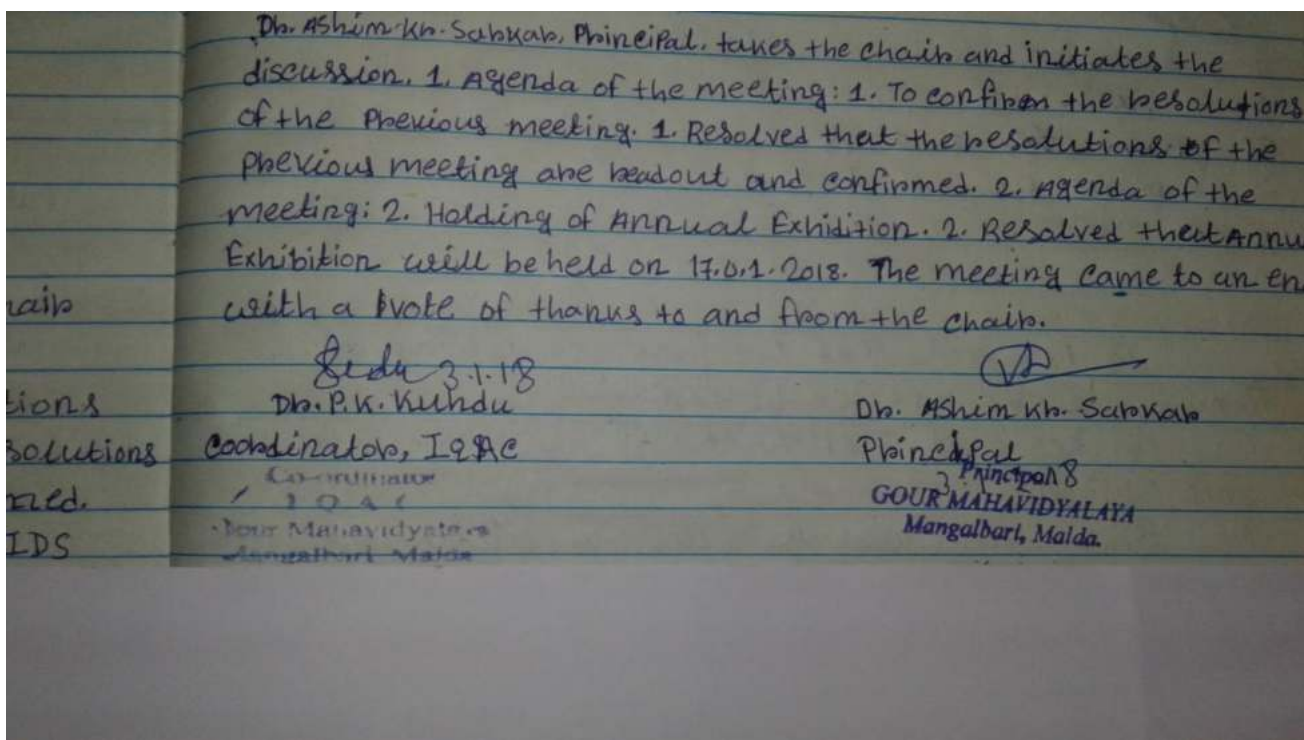 Dr. Ashim Kr. Sarkar, Principal, takes the chair and initiates the
discussion. 1. Agenda of the meeting: 1. To confirm the resolutions
of the Previous meeting. 1. Resolved that the resolutions of the
previous meeting are readout and confirmed. 2. Agenda of the
meeting: 2. Holding of Annual Exhidition. 2. Resolved that Annu
Exhibition will be held on 17.0.1.2018. The meeting came to an en
with a vote of thanks to and from the chair.
hair
3.1.18
tions
Dr. P.K. Kundu
Dr. Ashim Kr. Sarkar
solutions
Coordinator, IQAC
Principal
Co-ordinator
IQAC
Gour Mahavidyalaya
Mangalbari, Malda
Principal
GOUR MAHAVIDYALAYA
Mangalbari, Malda.
med.
IDS